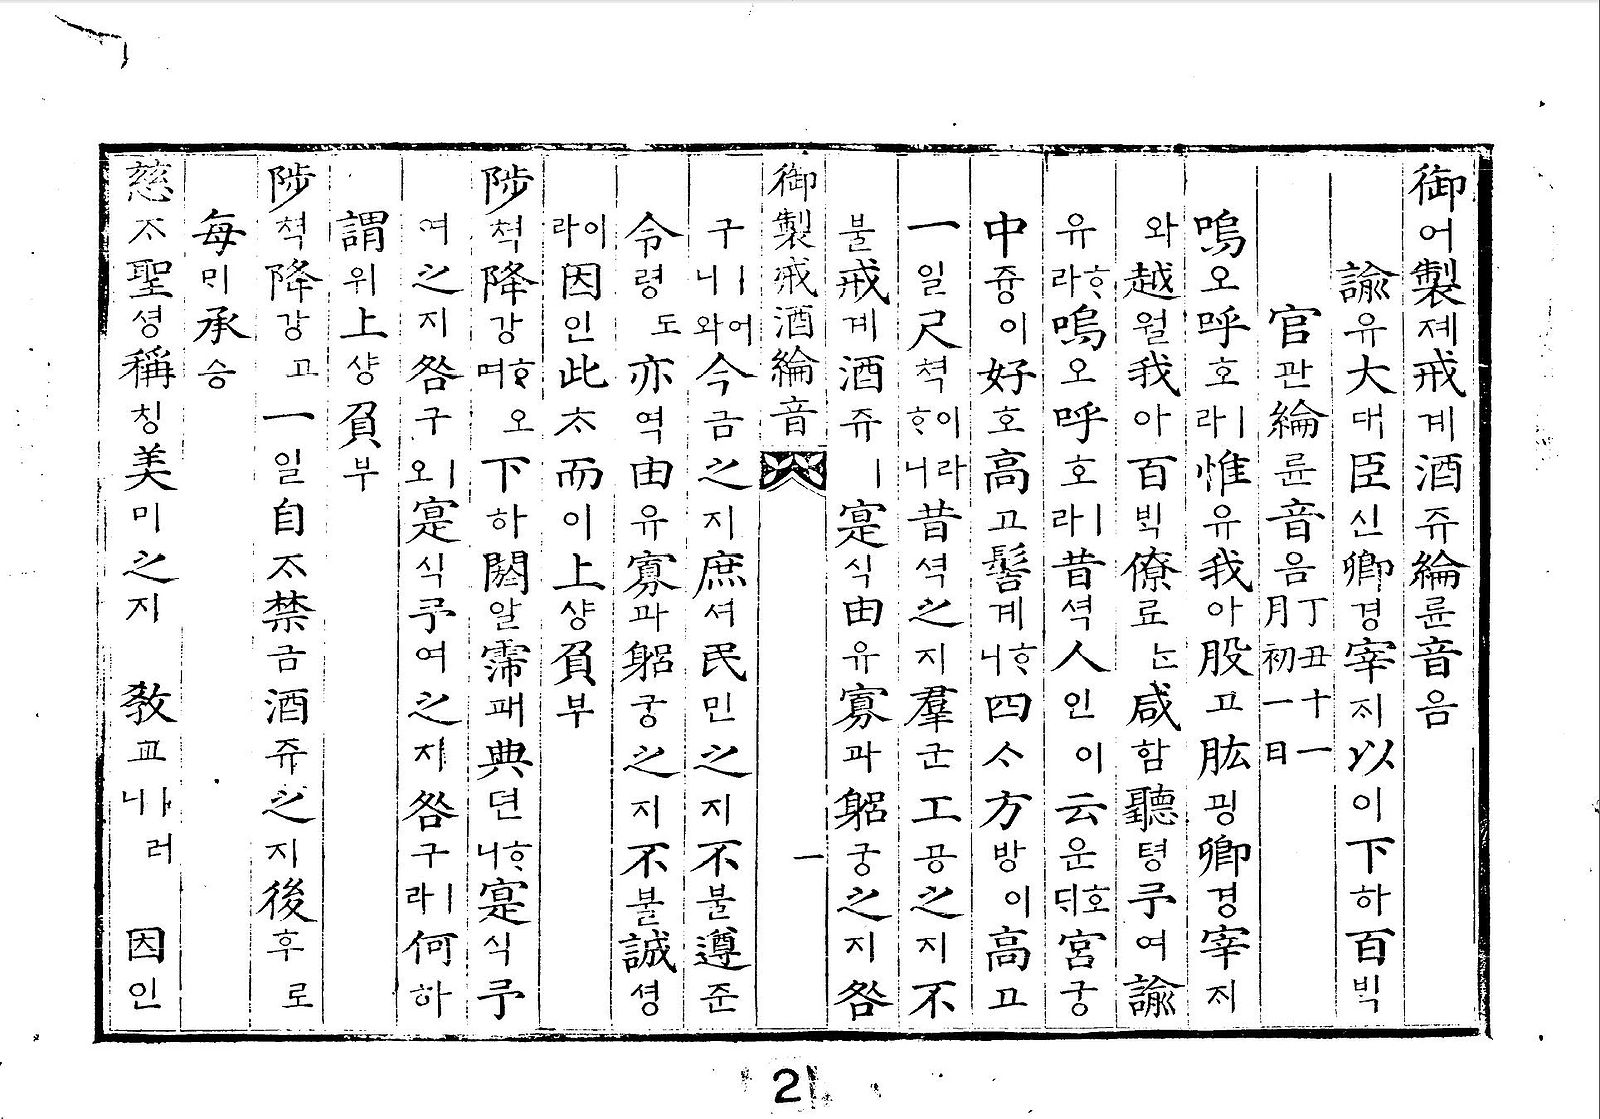 御어製졔戒계酒쥬綸륜音음
諭유大대臣신卿경宰ᄌᆡ以이下하百ᄇᆡᆨ
官관綸륜音음丁丑十一月初一日
嗚오呼호ㅣ라惟유我아股고肱굉卿경宰ᄌᆡ
와越월我아百ᄇᆡᆨ僚료ᄂᆞᆫ咸함聽텽予여諭
유ᄒᆞ라嗚오呼호ㅣ라昔셕人인이云운호ᄃᆡ宮궁
中즁이好호高고髻계ᄒᆞ니四ᄉᆞ方방이高고
一일尺쳑이라ᄒᆞ니昔셕之지羣군工공之지不
불戒계酒쥬ㅣ寔식由유寡과躬궁之지咎
구ㅣ니어와今금之지庶셔民민之지不불遵쥰
令령도亦역由유寡과躬궁之지不불誠셩
이라因인此ᄎᆞ而이上샹負부
陟쳑降강ᄒᆞ며오下하闕알霈패典뎐ᄒᆞ니寔식予
여之지咎구ㅣ오寔식予여之지咎구ㅣ라何하
謂위上샹負부
陟쳑降강고一일自ᄌᆞ禁금酒쥬之지後후로
每ᄆᆡ承승
慈ᄌᆞ聖셩稱칭美미之지敎교ㅏ니러因인
御製戒酒綸音
一
2